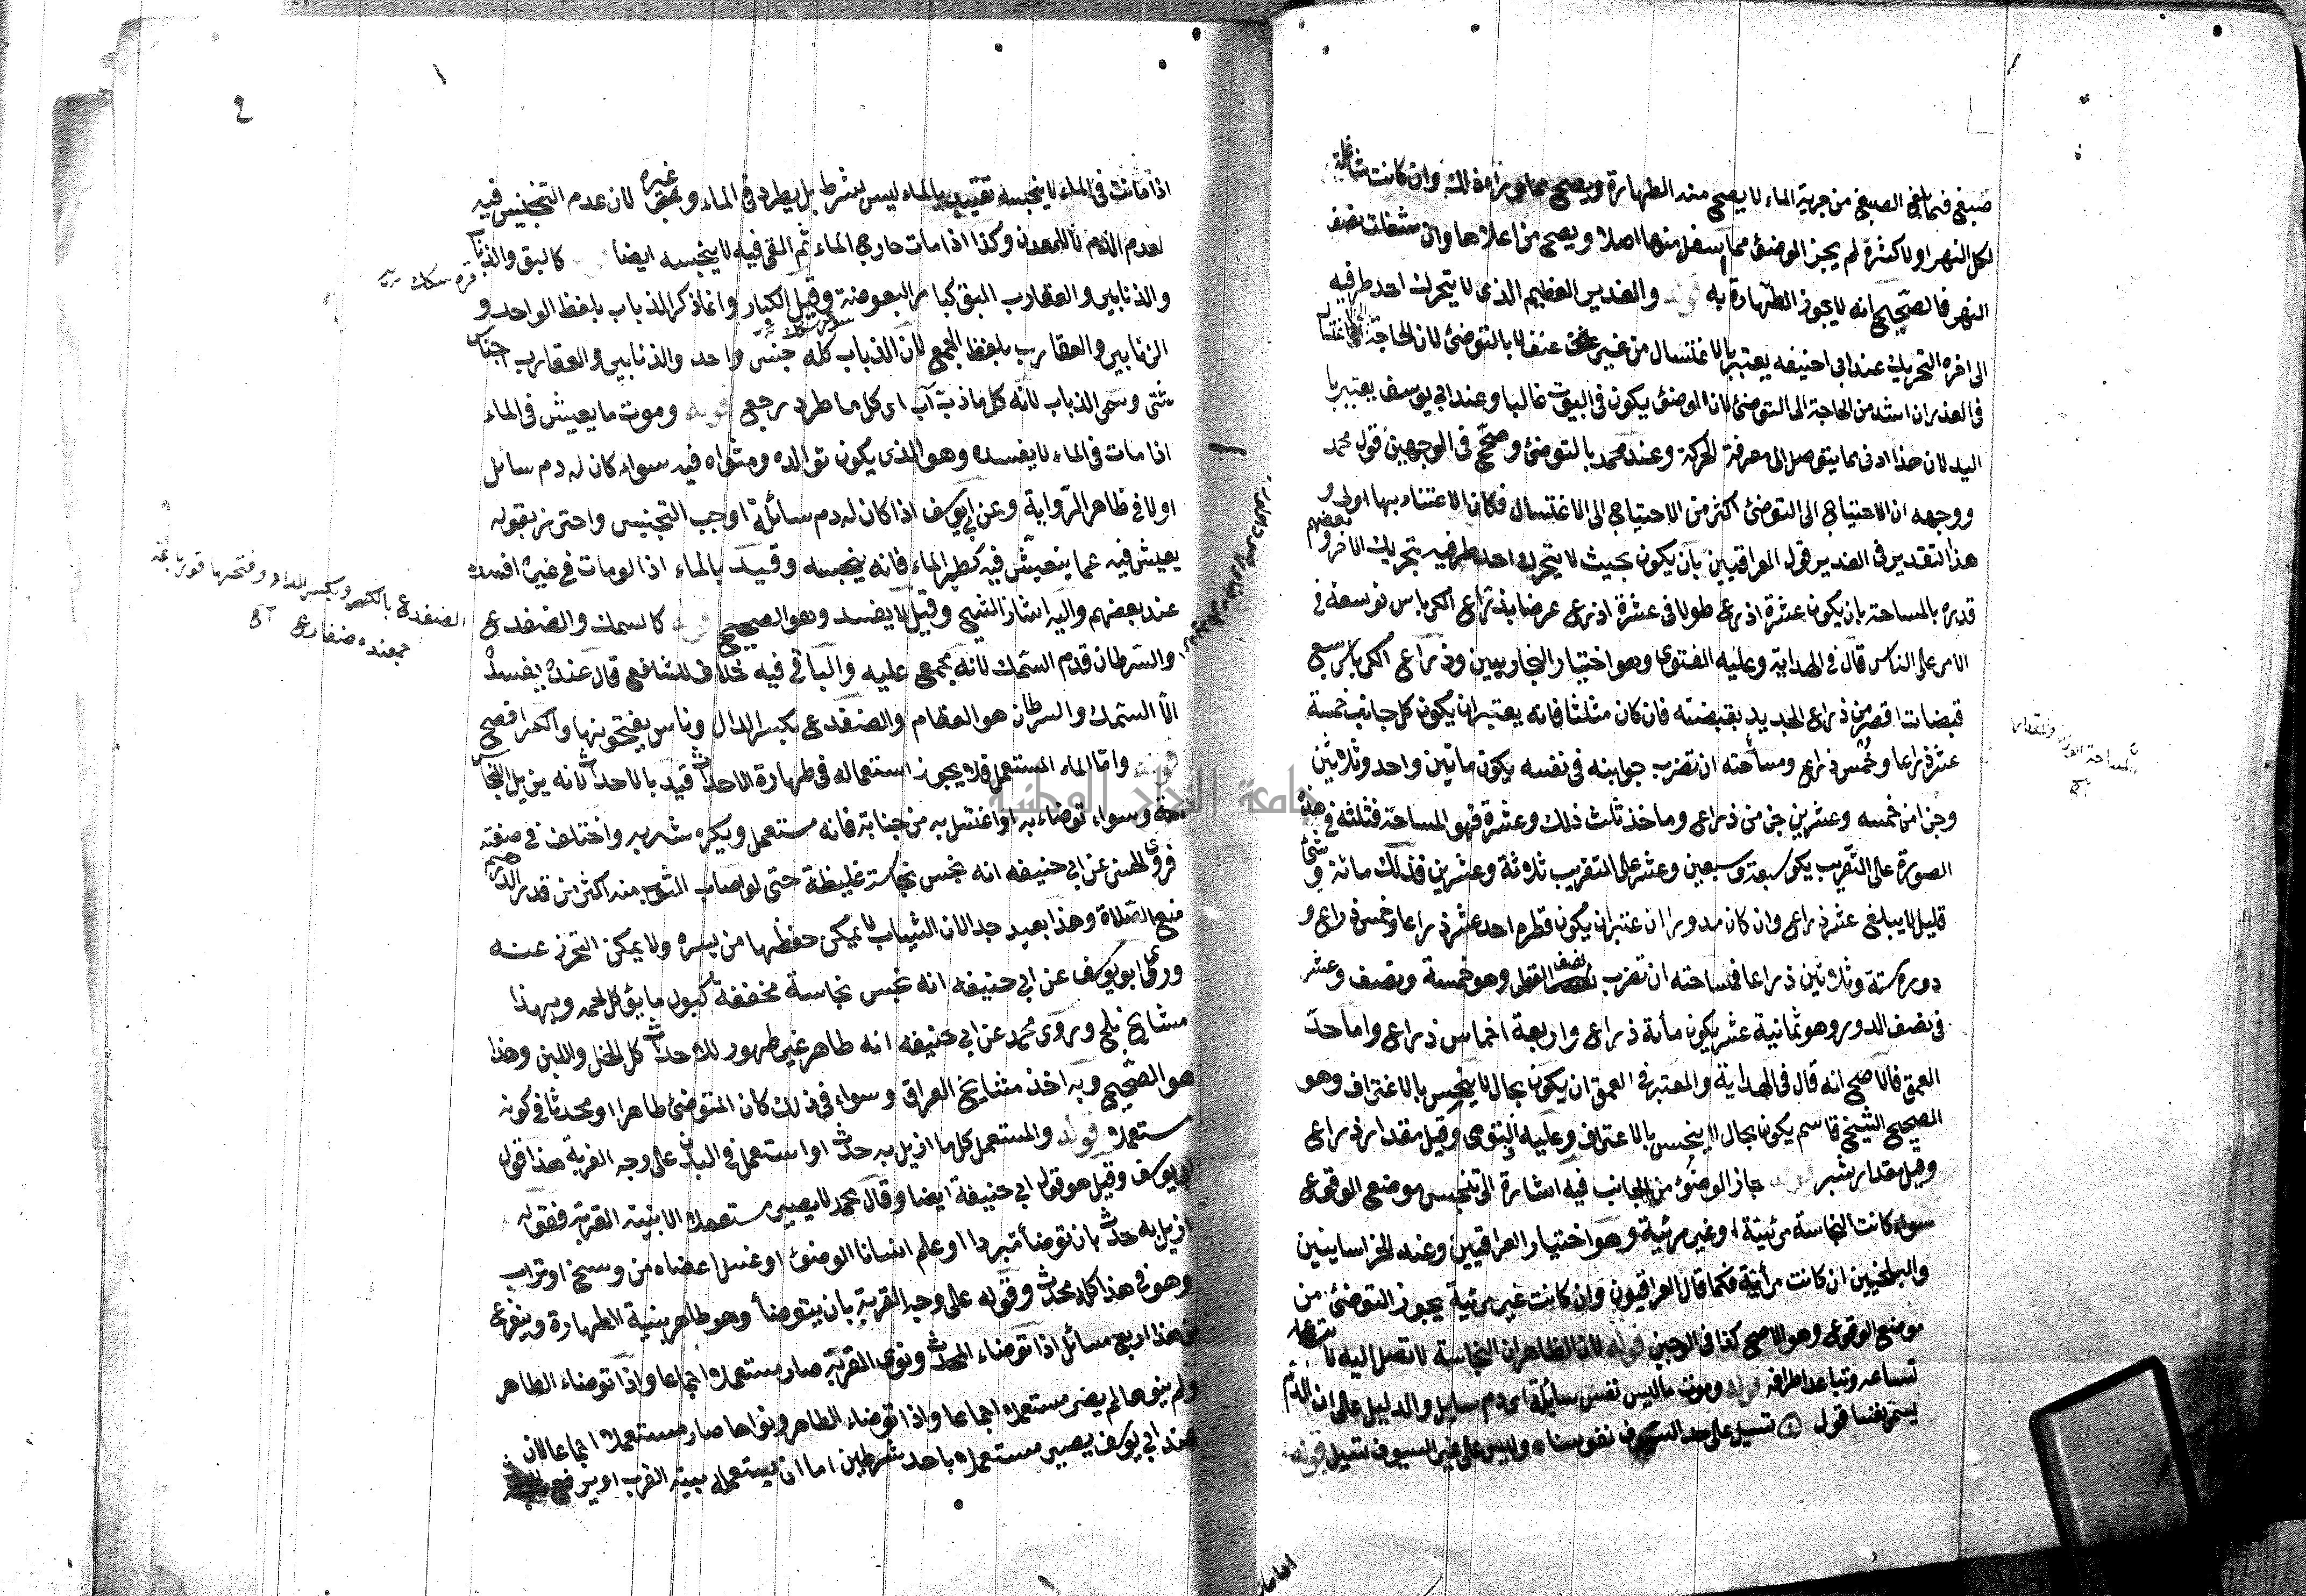 صبغ فما يلي الصبغ من جرية الماء لا يصح منه الطهارة ويصح مما وراء ذلك وان كانت شاغلة
لكل النهر او لاكثره لم يجز الوضوء مما اسفل منها اصلا ويصح من اعلاها وان شغلت نصف
النهر فالصحيح انه لا يجوز الطهارة به قوله والغدير العظيم الذي لا يتحرك احد طرفيه
الى اخره التحريك عند ابي حنيفه يعتبر بالاغتسال من غير عنف لا بالتوضئ لان الحاجة الى الاغتسال
في الغدران اشد من الحاجة الى التوضئ لان الوضوء يكون في البيوت غالبا وعند ابي يوسف يعتبر با
اليد لان هذا ادنى ما يتوصل الى معرفة الحركة وعند محمد بالتوضئ وصحح في الوجيز قول محمد
ووجهه ان الاحتياج الى التوضئ اكثر من الاحتياج الى الاغتسال فكان الاعتناء بها اولى و
هذا التقدير في الغدير قول العراقيين بان يكون بحيث لا يتحرك احد طرفيه بتحريك الاخر وبعضهم
قدره بالمساحة بان يكون عشرة اذرع طولا في عشرة اذرع عرضا بذراع الكرباس توسعة في
الامر على الناس قال في الهداية وعليه الفتوى وهو اختيار البخاريين وذراع الكرباس سبع
قبضات اقصر من ذراع الحديد بقبضته فان كان مثلثا فانه يعتبر ان يكون كل جانب خمسة
عشر ذراعا وخمس ذراع ومساحته ان تضرب جوابنه في نفسه يكون ماتين واحد وثلاثين
وجزا من خمسه وعشرين جزء من ذراع وما خذ ثلث ذلك وعشره فهو المساحة فثلثه في هذه
الصورة على التقريب يكون سبعة وسبعين وعشر على التقريب ثلاثة وعشرين فذلك مائة وشئ
قليل لا يبلغ عشر ذراع وان كان مدورا ان عتبران يكون قطره احد عشر ذراعا وخمس ذراع و
دوره ستة وثلاثين ذراعا فمساحته ان تضرب نصف القطر وهو خمسة ونصف وعشر
في نصف الدور وهو ثمانية عشر يكون مأة ذراع واربعة اخماس ذراع واما حدّ
العمق فالاصح انه قال في الهداية والمعتبر في العمق ان يكون بحال لا ينحبس بالاغتراف وهو
الصحيح الشيخ قاسم يكون بحال لا ينحسر بالاغتراف وعليه الفتوى وقيل مقدار ذراع
وقيل مقدار شبر قوله جاز الوضوء من الجانب فيه اشارة الى تنجس موضع الوقوع
سواء كانت النجاسة مرئية او غير مرئية وهو اختيار العراقيين وعند الخراسانيين
والبلخيين ان كانت مرأية فكما قال العراقيون وان كانت غير مرئية يجوز التوضئ من
موضع الوقوع وهو الاصح كذا في الوجيز قوله لان الظاهر ان النجاسة لا تصل اليه لا
تساعه وتباعد اطرافه قوله وموت ما ليس نفس سائلة اي دم سايل والدليل على ان الدم
يسمى نفسا قول تسيل على حد السيوف نفوسنا وليس على غير السيوف تسيل قوله
اذا مات في الماء لا ينجسه تقييده بالماء ليس بشرط بل يطرد في الماء وغيره لان عدم التنجيس فيه
لعدم الدم لا للمعدن وكذا اذا مات خارج الماء ثم القي فيه لا ينجسه ايضا قوله كالبق والذباب
والذنابير والعقارب البق كبار البعوضة وقيل الكبار وانما ذكر الذباب بلفظ الواحد و
الزنابير والعقارب بلفظ الجمع لان الذباب كله جنس واحد والذنابير والعقارب اجناس
شتى وسمي الذباب لانه كل ما ذب آب اي كل ما طرد رجع قوله وموت ما يعيش في الماء
اذا مات في الماء لا يفسده وهو الذي يكون توالده ومثواه فيه سواء كان له دم سائل
اولا في ظاهر الرواية وعن ابي يوسف اذا كان له دم سائلة اوجب التنجيس واحترز بقوله
يعيش فيه عما يتعيش فيه كطير الماء فانه ينجسه وقيد بالماء اذا لو مات في غيره افسده
عند بعضهم واليه اشار الشيخ وقيل لا يفسد وهو الصحيح قوله كالسمك والضفدع
والسرطان قدم السمك لانه مجمع عليه والباقي فيه خلاف للشافعي قال عنده يفسد
الا السمك والسرطان هو العظام والضفدع بكسر الدال وناس يفتحونها والكسر افصح
قوله واما الماء المستعمل فلا يجوز استعماله في طهارة الاحداث قيد بالاحداث لانه يزيل النجاس
ـة وسواء توضاء به او اغتسل به من جنابة فانه مستعمل ويكره شربه واختلف في صفته
فروى الحسن عن ابي حنيفه انه نجس نجاسة غليظة حتى لو اصاب الثوب منه اكثر من قدر الدرهم
منع الصلاة وهذا بعيد جدا لان الثياب لا يمكن حفظها من يسره ولا يمكن التحرز عنه
وروى ابو يوسف عن ابي حنيفه انه نجس نجاسة مخففة كبول ما يؤكل لحمه وبهذا
مشايخ بلخ وروى محمد عن ابي حنيفه انه طاهر غير طهور للاحداث كالخل واللبن وهذا
هو الصحيح وبه اخذ مشايخ العراق وسواء في ذلك كان المتوضئ طاهرا او محدثا في كونه
مستعملا قوله والمستعمل كل ما ازيل به حدث او استعمل في البدن على وجه القربة هذا قول
ابي يوسف وقيل هو قول ابي حنيفة ايضا وقال محمد لا يصير مستعملا الا بنية القربة فقوله
ازيل به حدث بان توضأ متبردا او علم انسانا الوضوء او غسل اعضاه من وسخ او تراب
وهو في هذا كله محدث وقوله على وجه القربة بان يتوضأ وهو طاهر بنية الطهارة ويتفرع
من هذا اربع مسائل اذا توضاء المحدث ونوى القربة صار مستعملا اجماعا واذا توضاء الطاهر
ولم ينوها لم يصر مستعملا اجماعا واذا توضاء الطاهر ونواها صار مستعملا اجماعا لان
عند ابي يوسف يصير مستعملا باحد شرطين اما ان يستعمله بنية القرب او يرفع
الضفدع بالكسر وبكسر الدال وفتحها قورباغه
جمعنده ضفادع